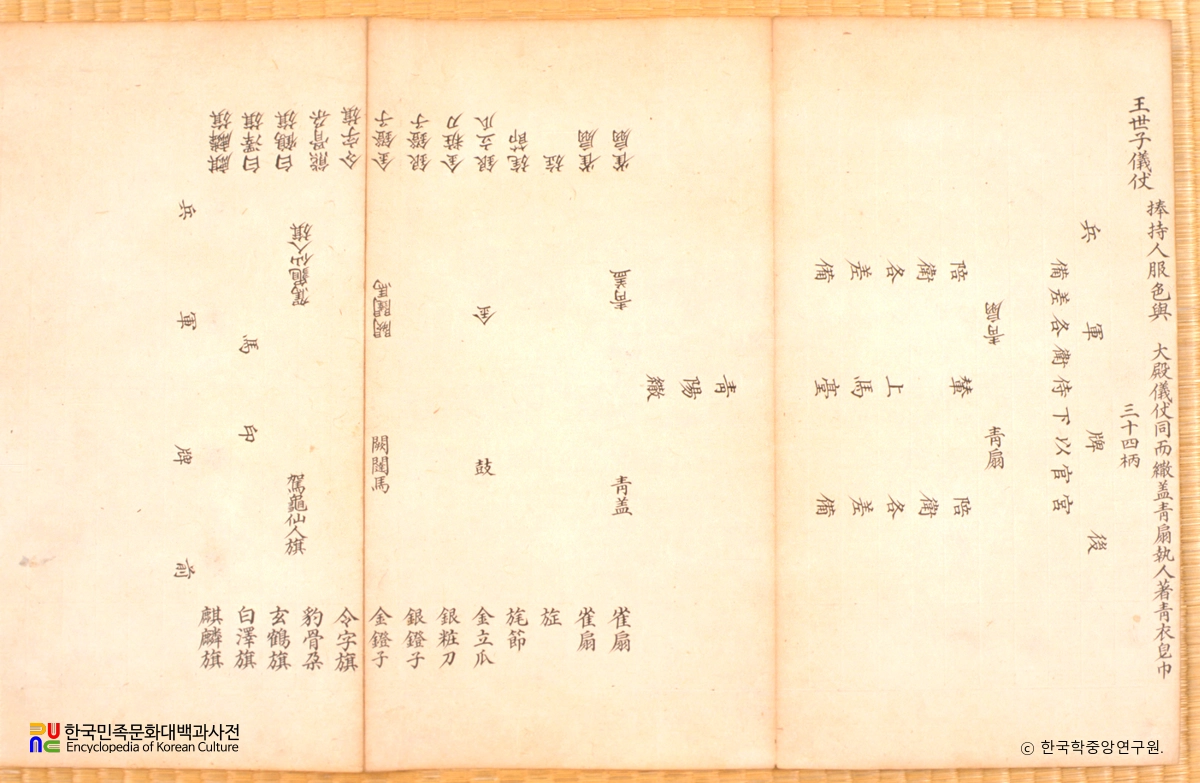 王世子儀仗 捧持人服色與 大殿儀仗同而繖盖靑扇執人著靑衣皂巾
三十四柄
後牌軍兵
宮官以下侍衛各差備
靑扇
靑扇
陪衛各差備
輦上馬臺
陪衛各差備
靑陽繖
雀扇
靑盖
靑盖
雀扇
雀扇
雀扇
旌
旌
旄節
旄節
銀立瓜
金
鼓
金立瓜
金粧刀
銀粧刀
銀鐙子
銀鐙子
金鐙子
闕闥馬
闕闥馬
金鐙子
令字旗
令字旗
熊骨朶
豹骨朶
白鶴旗
駕龜仙人旗
駕龜仙人旗
玄鶴旗
白澤旗
印馬
白澤旗
麒麟旗
麒麟旗
前牌軍兵
한국민족문화대백과사전
Encyclopedia of Korean Culture
ⓒ 한국학중앙연구원.